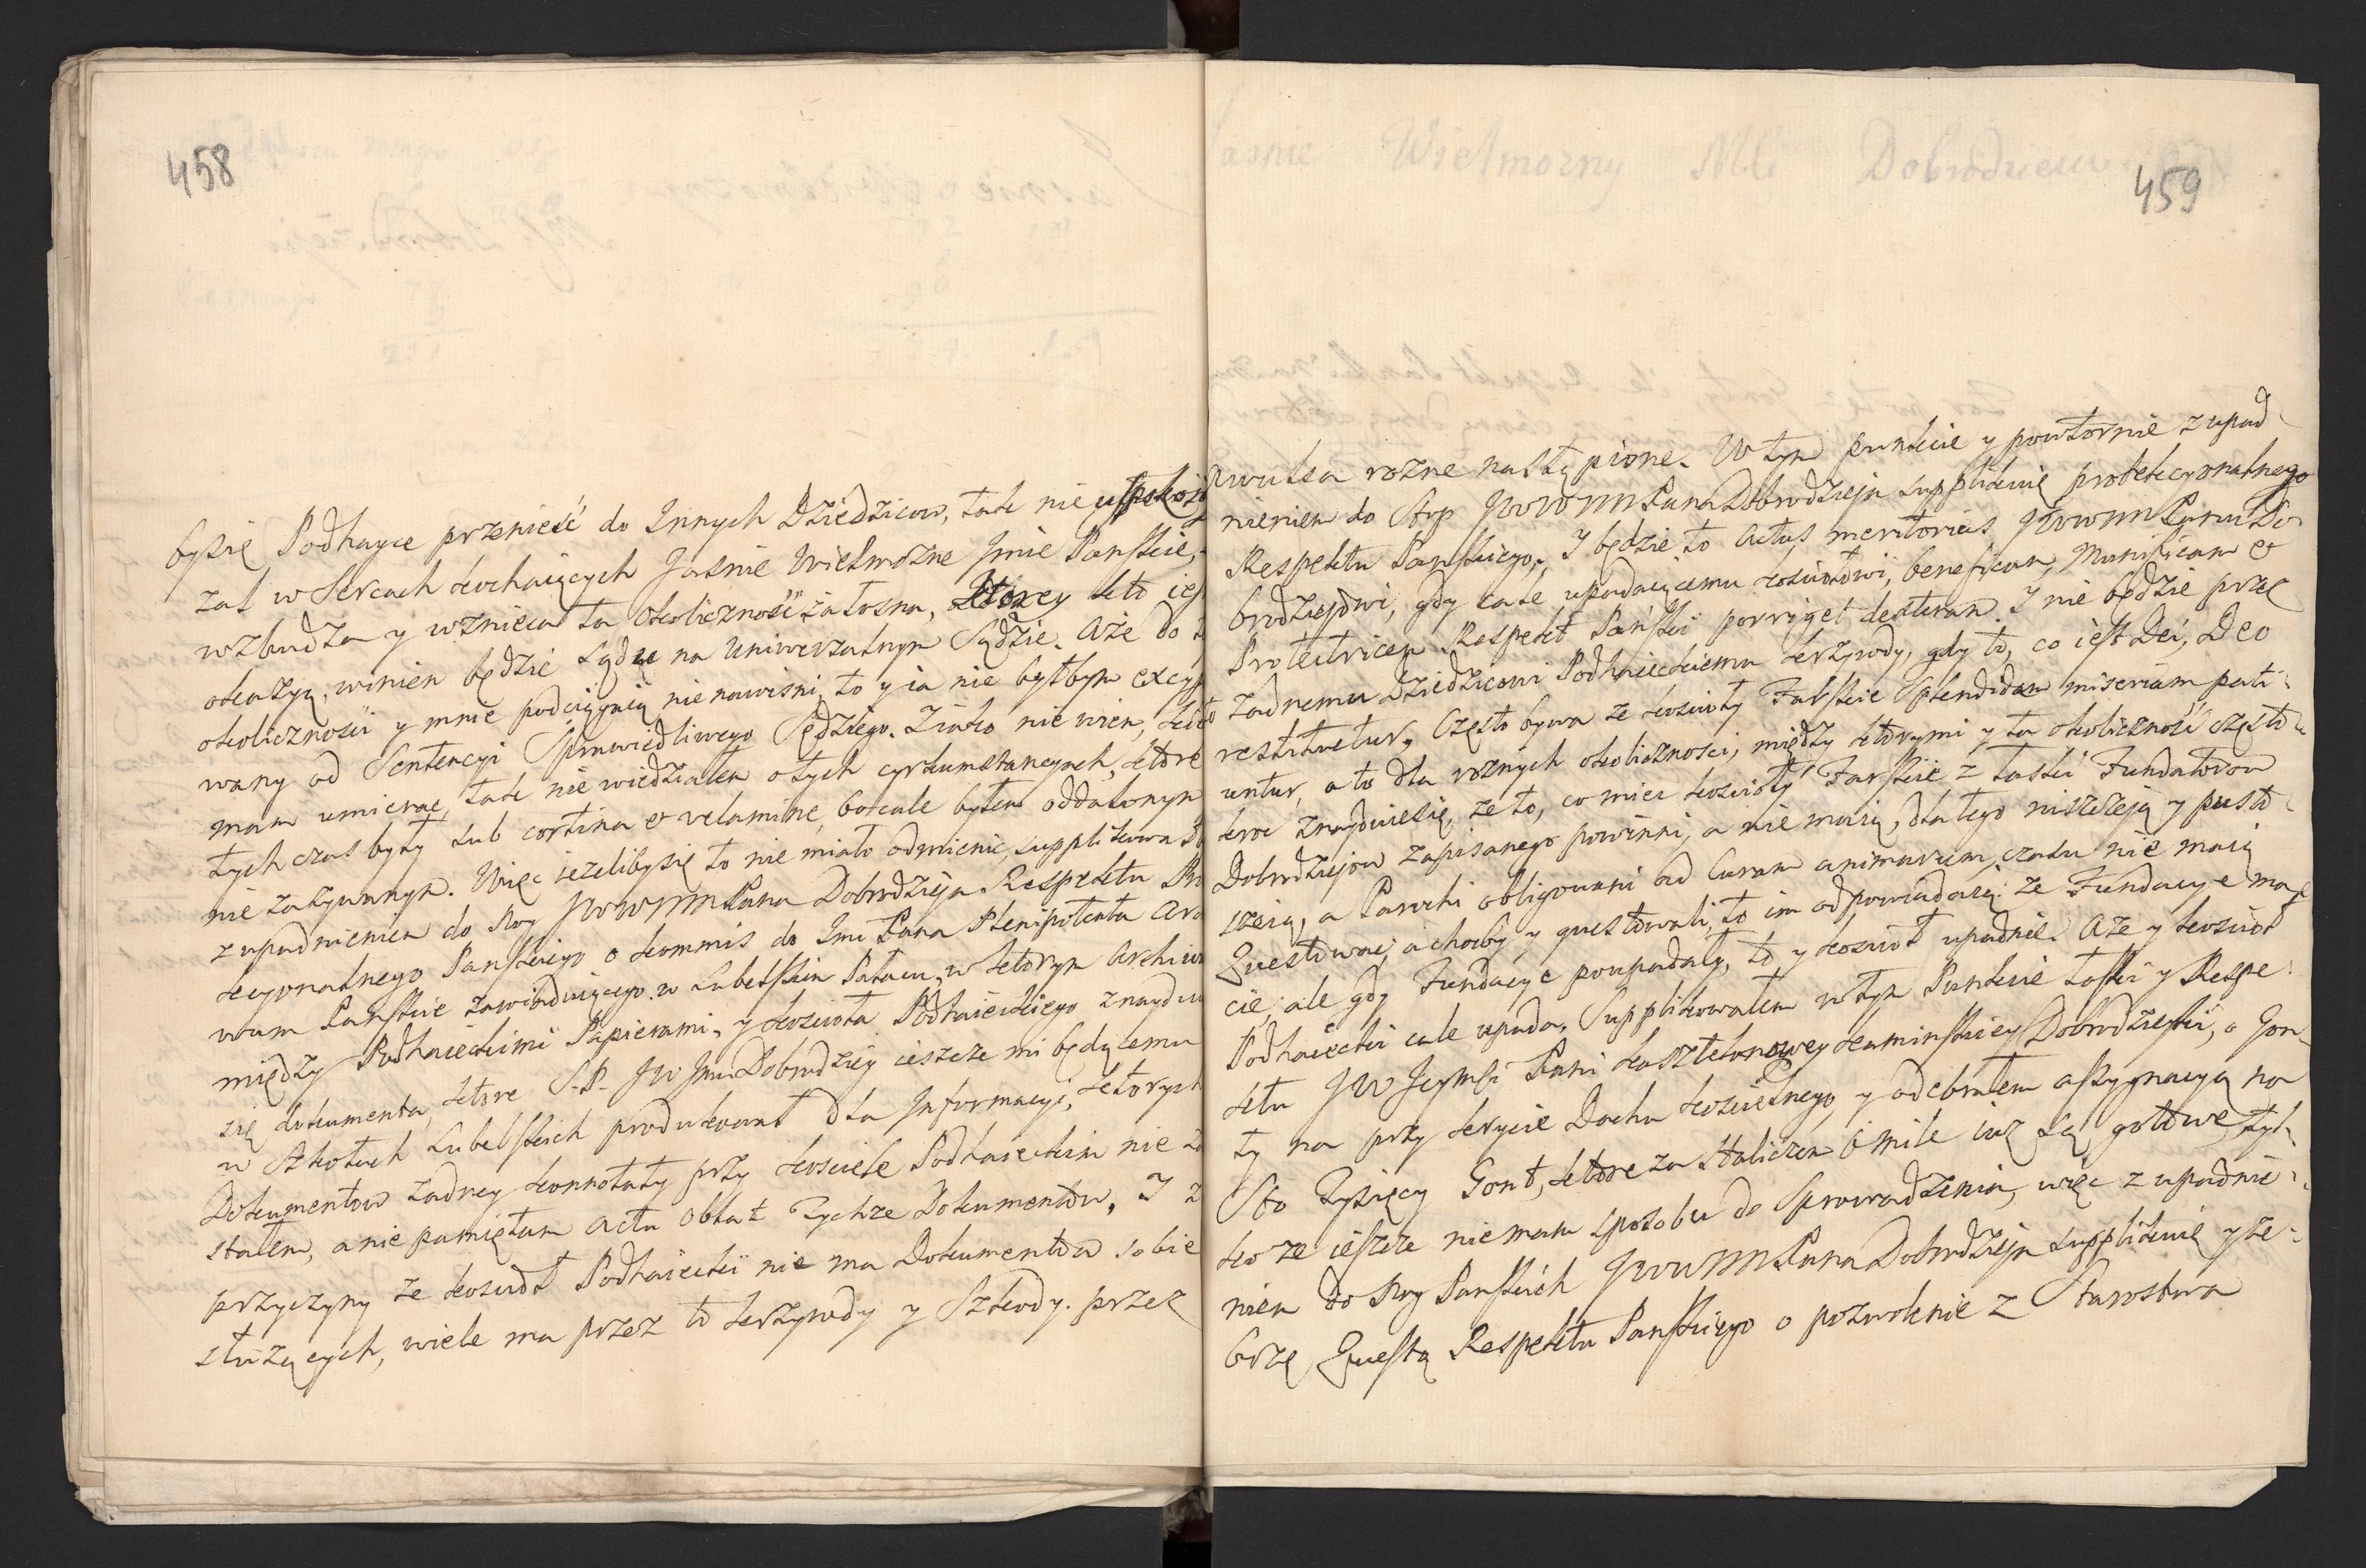 458
bysię Podhayce przenieść do Innych Dziedzicow, tak nie
żal w Sercach kochaiących Jaśnie Wielmożne Jmie Pańskie,
wzbudza y wznieca ta okoliczność żałosna, ktorey kto ies
okazyą, winien będzie Sądu na Uniwerzalnym Sądzie. Aże do
okolicznośći y mnie podciągnią nienawiśni, to y ia nie byłbym excyp
wany od Sentencyi Sprawiedliwego Sędziego. Ziako nie wiem, kied
mam umierac, tak nie wiedziałem otych cyrkumstancyach, ktore
tych czas były sub cortina et velamine, bo cale byłem oddalonym
nie zażywanym. Więc ieżelibysię to nie miało odmienić, supplikowa
zupadnieniem do Nog JWWMMPana Dobrodzieja Respektu Pro
tekcyonalnego Pańskiego o kommis do Jmi Pana Plenipotenta Arc
wum Pańskie zawiaduiącego w Lubelskim Pałacu, w ktorym Archiw
między Podhaieckimi Papierami, y kościoła Podhaieckiego znayduią
się dokumenta, ktore S.P. JW Jmć Dobrodziey ieszcze mi będącemu
w Szkołach Lubelskich produkował dla Informacyi, ktorych
Dokumentow żadney konnotaty przy kościele Podhaieckim nie
stałem, a nie pamiętam actu oblat Tychże Dokumentow. I z
przyczyny że kosciół Podhaiecki nie ma Dokumentow sobie
służących, wiele ma przez to krzywdy y Szkody. przez
459
Awulsa rożne nastąpione. W tym punkcie y powtornie zupad-
nieniem do Stop JWWMMPana Dobrodzieja supplikuię protekcyonalnego
Respektu Pańskiego. I będzie to Actus meritorius JWWMMPanu Do-
brodziejowi, gdy cale upadaiącemu kościołowi, beneficam, Munificam et
Protectricem Respekt Pański porriget dexteram. I nie będzie przez
żadnemu Dziedzicowi Podhaieckiemu krzywdy, gdy to, co iest Dei, Deo
restituetur. Często bywa ze kościoły Farskie Splendidam miseriam pati-
untur, a to dla rożnych okolicznosci, między ktorymi y ta okoliczność często-
kroc znayduiesię, że to, co miec kościoły Farskie z łaski Fundatorow
Dobrodziejow zapisanego powinni, a nie maią, dlatego niszczeją y pusto-
szeią, a Parochi obligowani ad Curam animarum, czasu nie maią
Questować, a choćby y questowali, to im odpowiadaią: że Fundacye ma
cie, ale gdy Fundacye poupadały, to y kościoł upadnie. Aże y kościoł
Podhaiecki cale upada. Supplikowałem w tym Punkcie Łaski y Respe-
ktu JW Jeymsć Pani kasztelanowey kaminskiey Dobrodzieyki, o Gon-
ty na przykrycie Dachu kościelnego, y odebrałem assygnacyą na
Sto Tysięcy Gont, ktore za Haliczem o mile iuż są gotowe, tyl-
ko że ieszcze niemam sposobu do Sprowadzenia, więc z upadnie-
niem do Nog Pańskich JWWMMPana Dobrodzieja supplikuię y że-
brzę Questą Respektu Pańskiego o pozwolenie z Starostwa